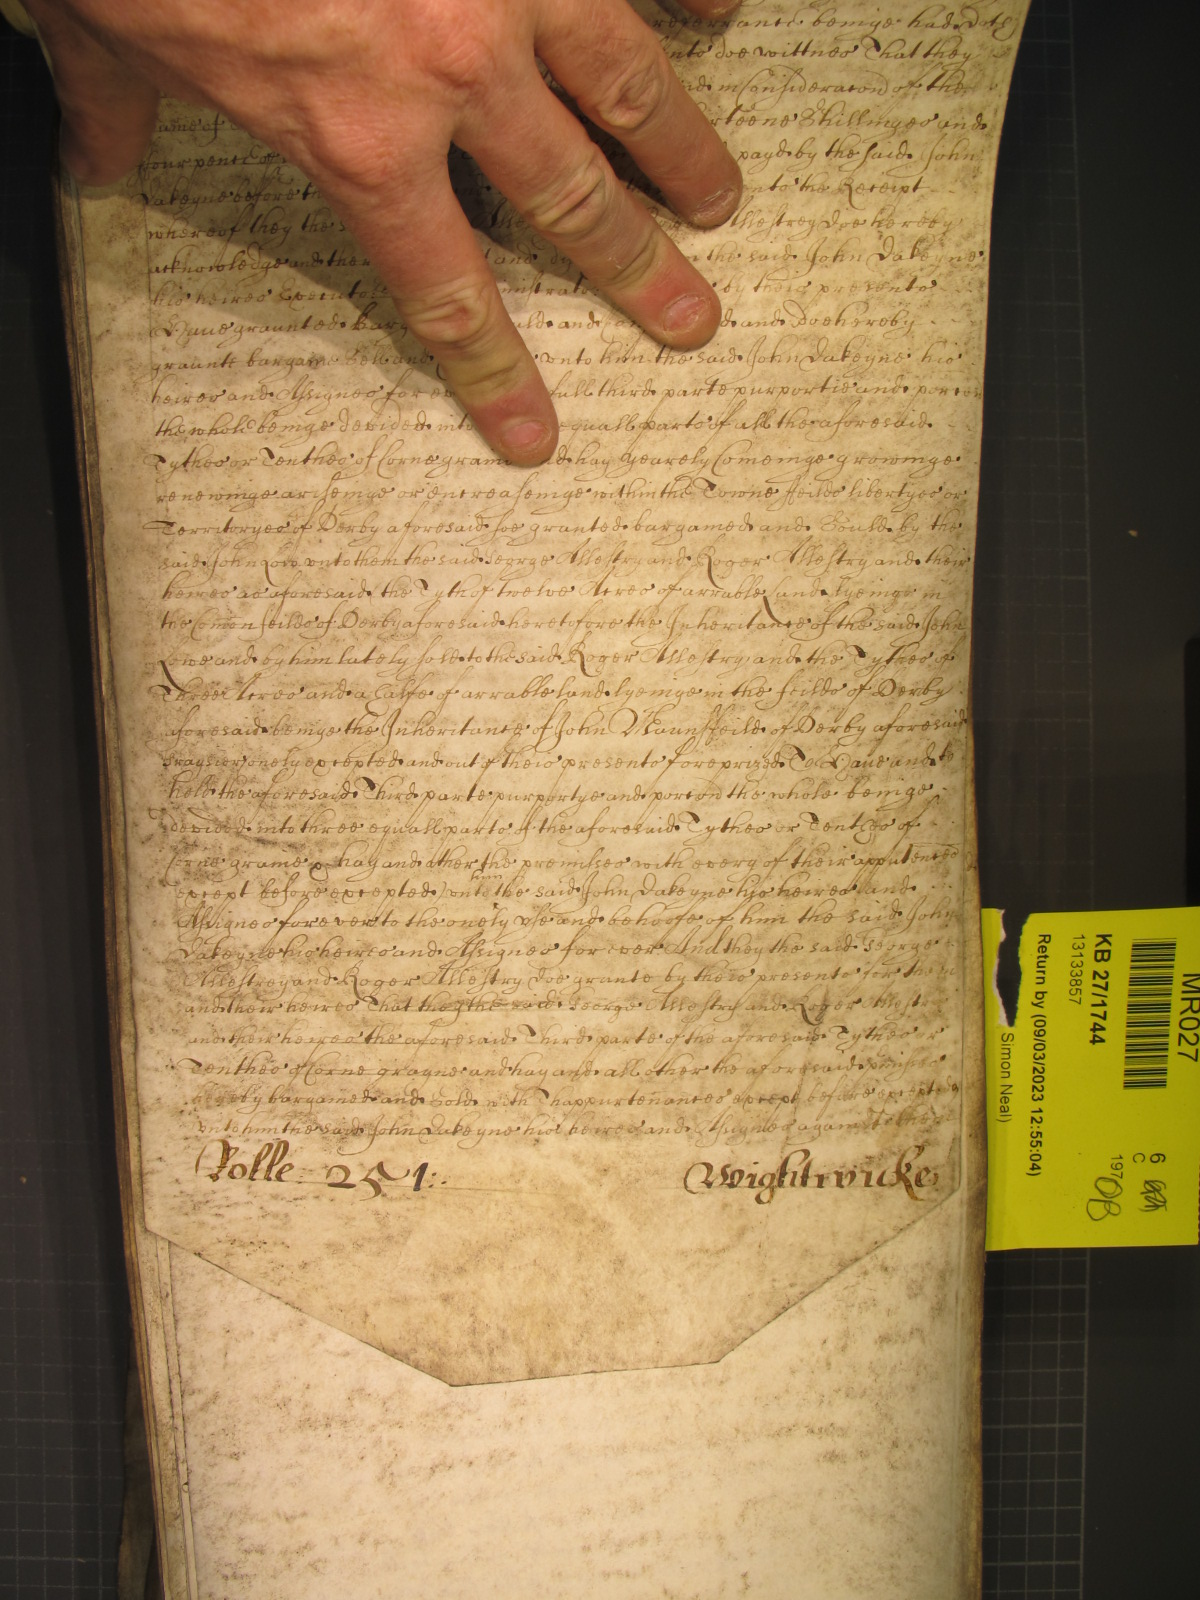 referrance beinge had doth
unto doe wittnes That they
and in Consideracion of the
Same of teene Shillinges and
ffour pence of payd by the said John
Dakeyne before th unto the Receipt
whereof they the s Allestrey doe hereby
acknowledge and ther and the said John Dakeyne
his heires Executo ministrato by theis presents
Have graunted barg and and Doe hereby
graunte bargaine Sell and unto him the said John Dakeyne his
heires and Assignes for ev full third parte purportie and porcon
the whole beinge devided into equall parts of all the aforesaid
Tythes or Tenthes of Corne graine and hay yearely Comeinge growinge
renewinge ariseinge or encreaseinge within the Towne ffeilds libertyes or
Territoryes of Derby aforesaid soe granted bargained and Sould by the
said John Low unto them the said George Allestry and Roger Allestry and their
heires as aforesaid the Tyth of twelve Acres of arrable land lyeinge in
the Comon feilds of Derby aforesaid heretofore the Inheritance of the said John
Lowe and by him lately sold to the said Roger Allestry and the Tythes of
Three Acres and a Halfe of arrable land lyeinge in the feilds of Derby
aforesaid beinge the Inheritance of John Maunsfeild of Derby aforesaid
Brasier onely excepted and out of theis presents foreprized To Have and to
hold the aforesaid Third parte purportye and porcon the whole beinge
devided into three equall parts of the aforesaid Tythes or Tenthes of
Corne graine & hay and other the premises with every of their appurtenences
except before excepted unto him the said John Dakeyne hys heires and
Assignes for ever to the onely use and behoofe of him the said John
Dakeyne his heires and Assignes for ever And they the said George
Allestrey and Roger Allestry doe grante by theis presents for them
and their heires That they the said George Allestry and Roger Allestr
and their heires the aforesaid Third parte of the aforesaid Tythes or
Tenthes of Corne grayne and hay and all other the aforesaid premises
hereby bargained and sold with Thappurtenances except before excepted
unto him the said John Dakeyne his heires and Assignes against
Rolle: 251:. Wightwicke
MR027
KB 27/1744
13133857
Return by (09/03/2023 12:55:04)
Simon Neal
6
C
197